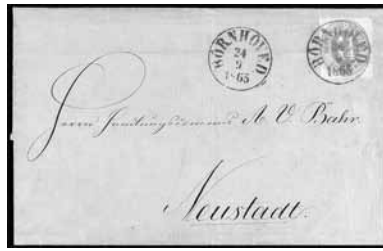 BORNHOLED
24
9
1865
BORNHOLED
1865
Herrn A. C. Bahr
Neustadt.